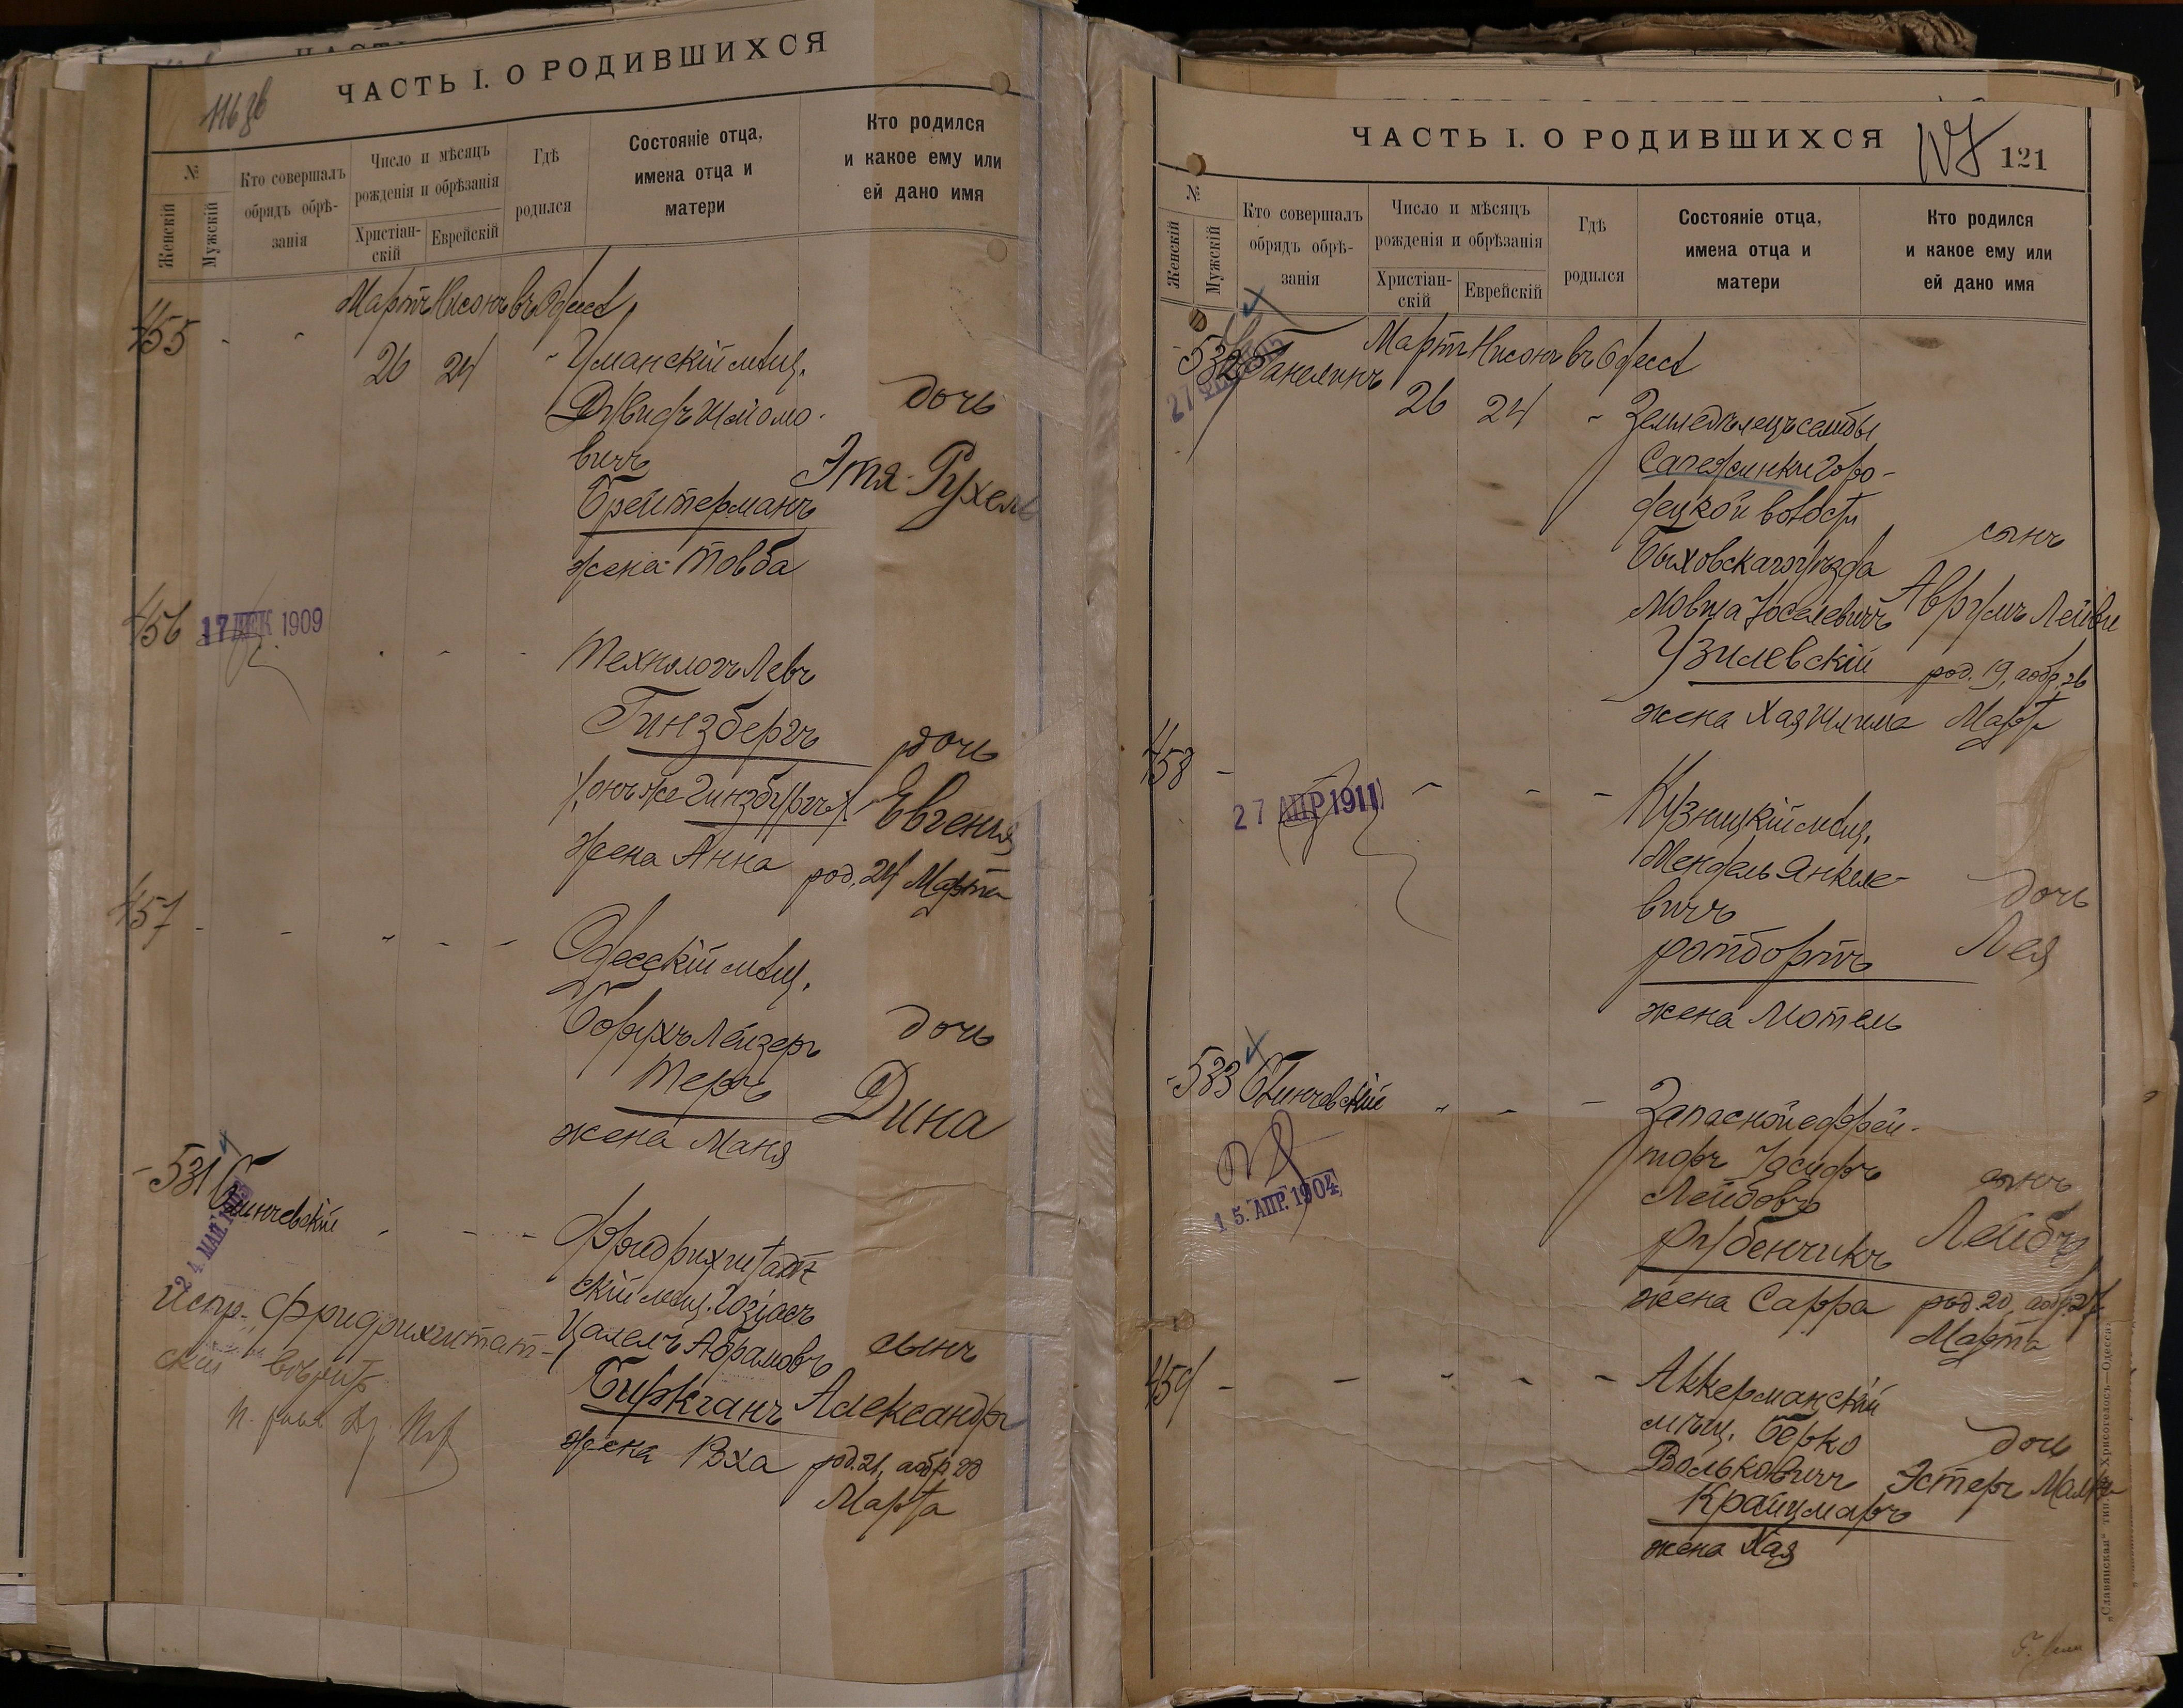 ЧАСТЬ I. О РОДИВШИХСЯ
№
Женскій
Мужскій
Кто совершалъ
обрядъ обрѣ-
занія
Число и мѣсяцъ
рожденія и обрѣзанія
Христіан-
скій
Еврейскій
Гдѣ
родился
Состояніе отца,
имена отца и
матери
Кто родился
и какое ему или
ей дано имя
Мартъ Нисонъ въ Одессѣ
455 - - 26 24 - Уманскій мѣщ.
Дувидъ Шоломо-
вичъ
Брейтерманъ
жена Товба
дочь
Этя-Рухель
456 17 ДЕК 1909
Технологъ Левъ
Гинзбергъ
онъ же Гинзбургъ
жена Анна
дочь
Евгенія
род. 24 Марта
457 - - - - - Одесскій мѣщ.
Борухъ Лейзеръ
Теръ
жена Маня
дочь
Дина
531 Блинчевскій
24 МАЙ
Фридрихштадт
скій мѣщ.
Цалелъ Абрамовъ
Биркганъ
жена Роха
сынъ
Александръ
род. 21, а обр. 28
Марта
Испр. Фридрихштат-
скій вѣрить
ЧАСТЬ I. О РОДИВШИХСЯ
121
№
Женскій
Мужскій
Кто совершалъ
обрядъ обрѣ-
занія
Число и мѣсяцъ
рожденія и обрѣзанія
Христіан-
скій
Еврейскій
Гдѣ
родился
Состояніе отца,
имена отца и
матери
Кто родился
и какое ему или
ей дано имя
Мартъ Нисонъ въ Одессѣ
532 Ганелинъ 26 24 - Земледѣлецъ
Горо-
децкой волости
Быховскаго уѣзда
Мовша Іоселевичъ
Узилевскій
жена Хая
сынъ
Аврумъ Лейви
род. 19, а обр. 26
Марта
458 - 27 АПР 1911 - - - Кузницкій мѣщ.
Мендель Янкеле-
вичъ
Ротбортъ
жена Мотель
дочь
Лея
533 Блинчевскій - - - Запасной ефрей-
торъ Іосифъ
Лейбовъ
Рубенчикъ
жена Сарра
15. АПР. 1904
сынъ
Лейбъ
род. 20, а обр. 27
Марта
459 - - - - - Аккерманскій
мѣщ. Берко
Вольковичъ
Крайцмаръ
жена Хая
дочь
Эстеръ Малка
„Славянская“ тип. Хрисогелосъ—Одесса.